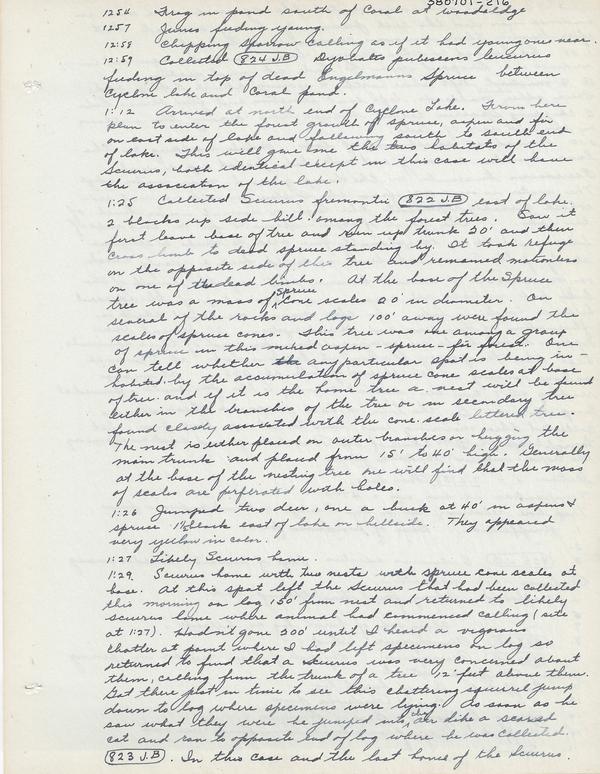 S80701-216
1254 Frog in pond south of Coral at Woodaledge
1257 Junco feeding young.
12:58 Chipping Sparrow calling as if it had young ones near.
12:59 Collected (824 J.B) Dryobates pubescens leucurus
feeding in top of dead Engelmanns Spruce between
Cyclone lake and Coral pond.
1:12 Arrived at north end of Cyclone Lake. From here
plan to enter the forest growth of spruce, aspen and fir
on east side of lake and following south to south end
of lake. This will give me the two habitats of the
Sciurus, both identical except in this case will have
the association of the lake.
1:25 Collected Sciurus fremontii (822 J.B) east of lake.
2 blocks up side hill among the forest trees. Saw it
first leave base of tree and run up trunk 20' and then
cross limb to dead spruce standing by. It took refuge
on the opposite side of this tree and remained motionless
on one of the dead limbs. At the base of the Spruce
tree was a mass of spruce cone scales 20' in diameter. On
several of the rocks and logs 100' away were found the
scales of spruce cones. This tree was one among a group
of spruce in this mixed aspen-spruce-fir forest. One
can tell whether the any particular spot is being in-
habited by the accumulation of spruce cone scales at base
of tree and if it is the home tree a nest will be found
either in the branches of the tree or in secondary tree
found closely associated with the cone scale littered tree.
The nest is either placed on outer branches or hugging the
main trunk and placed from 15' to 40' high. Generally
at the base of the nesting tree one will find that the mass
of scales are perforated with holes.
1:26 Jumped two deer, one a buck at 40' in aspens &
spruce 1½ block east of lake on hillside. They appeared
very yellow in color.
1:27 Likely Sciurus home.
1:29. Sciurus home with two nests with spruce cone scales at
base. At this spot left the Sciurus that had been collected
this morning on log 150' from nest and returned to likely
sciurus home where animal had commenced calling (site
at 1:27). Hadn't gone 200' until I heard a vigorous
chatter at point where I had left specimens on log so
returned to find that a Sciurus was very concerned about
them, calling from the trunk of a tree 12 feet above them.
Got there just in time to see this chattering squirrel jump
down to log where specimens were lying. As soon as he
saw what they were he jumped into the air like a scared
cat and ran to opposite end of log where he was collected.
(823 J.B). In this case and the last homes of the Sciurus.